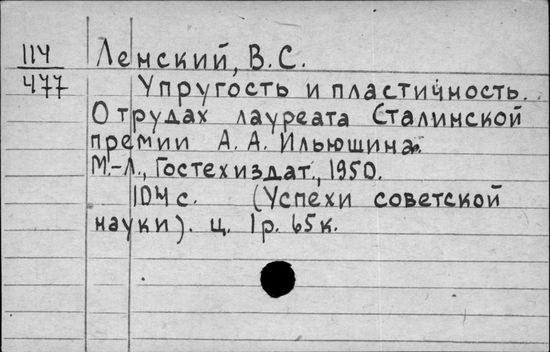 114
477
Ленский, В.С.
Упругость и пластичность.
О трудах лауреата Сталинской
премии А. А. Ильюшина.
М.-Л., Гостехиздат., 1950.
104 с. (Успехи советской
науки). ц. 1 р. 65 к.